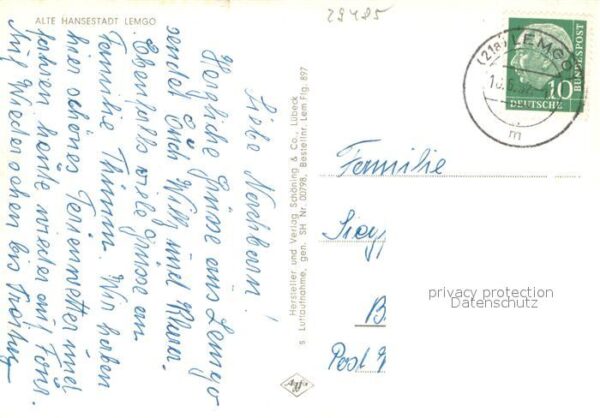 ALTE HANSESTADT LEMGO
29485
Liebe Nachbarn!
Herzliche Grüsse aus Lemgo
sendet Euch Willy und Klara.
Ebenfalls viele Grüsse an
Familie Thimm. Wir haben
hier schönes Ferienwetter und
fahren heute wieder auf Tour.
Auf Wiedersehen bis
Hersteller und Verlag Schöning & Co., Lübeck
s Luftaufnahme, gen. SH Nr. 00798, Bestellnr. Lem Flg. 897
Agfa
(21a) LEMGO
m
10
DEUTSCHE
BUNDESPOST
Familie
B
Post
privacy protection
Datenschutz